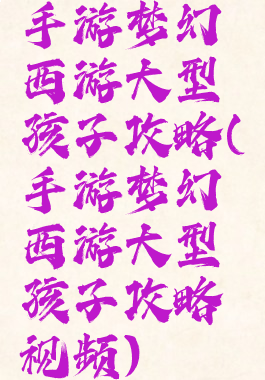 手游梦幻
西游大型
孩子攻略(
手游梦幻
西游大型
孩子攻略
视频)